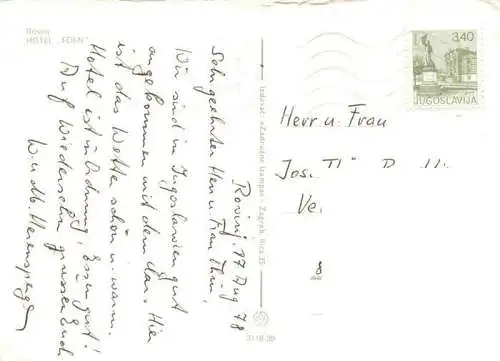 Rovinj
HOTEL „EDEN"
Rovinj, 17 Aug 78
Sehr geehrter Herr u. Frau
Wir sind in Jugoslawien gut
angekommen mit dem Car. Hier
ist das Wetter schön u. warm.
Hotel ist in Ordnung! Essen gut!
Auf Wiedersehn grüssen Euch
W. u. Mb.
Izdavač »Zadružna štampa« - Zagreb, Ilica 35
3118-39
3,40
JUGOSLAVIJA
Herr u. Frau
Jos.
Ve
8